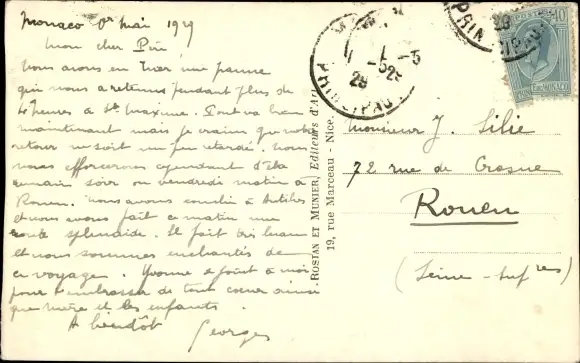 Monaco 1er Mai 1929
Mon cher Père
Nous avons eu hier une panne
qui nous a retenus pendant plus de
4 heures à Ste Maxime. Tout va bien
maintenant mais je crains que notre
retour ne soit un peu retardé. Nous
nous efforcerons cependant d'être
demain soir ou vendredi matin à
Rouen. Nous avons couché à Antibes
et nous avons fait ce matin une
route splendide. Il fait très beau
et nous sommes enchantés de
ce voyage. Yvonne se joint à moi
pour t'embrasser de tout cœur ainsi
que mère et les enfants.
A bientôt
Georges
ROSTAN ET MUNIER, Editeurs d'Art
19, rue Marceau - Nice.
PRINCIPAU
1-5
29
POSTES
40
PRINCIPAU
Monsieur J. Silie
72 rue de Crosne
Rouen
(Seine-Infres)